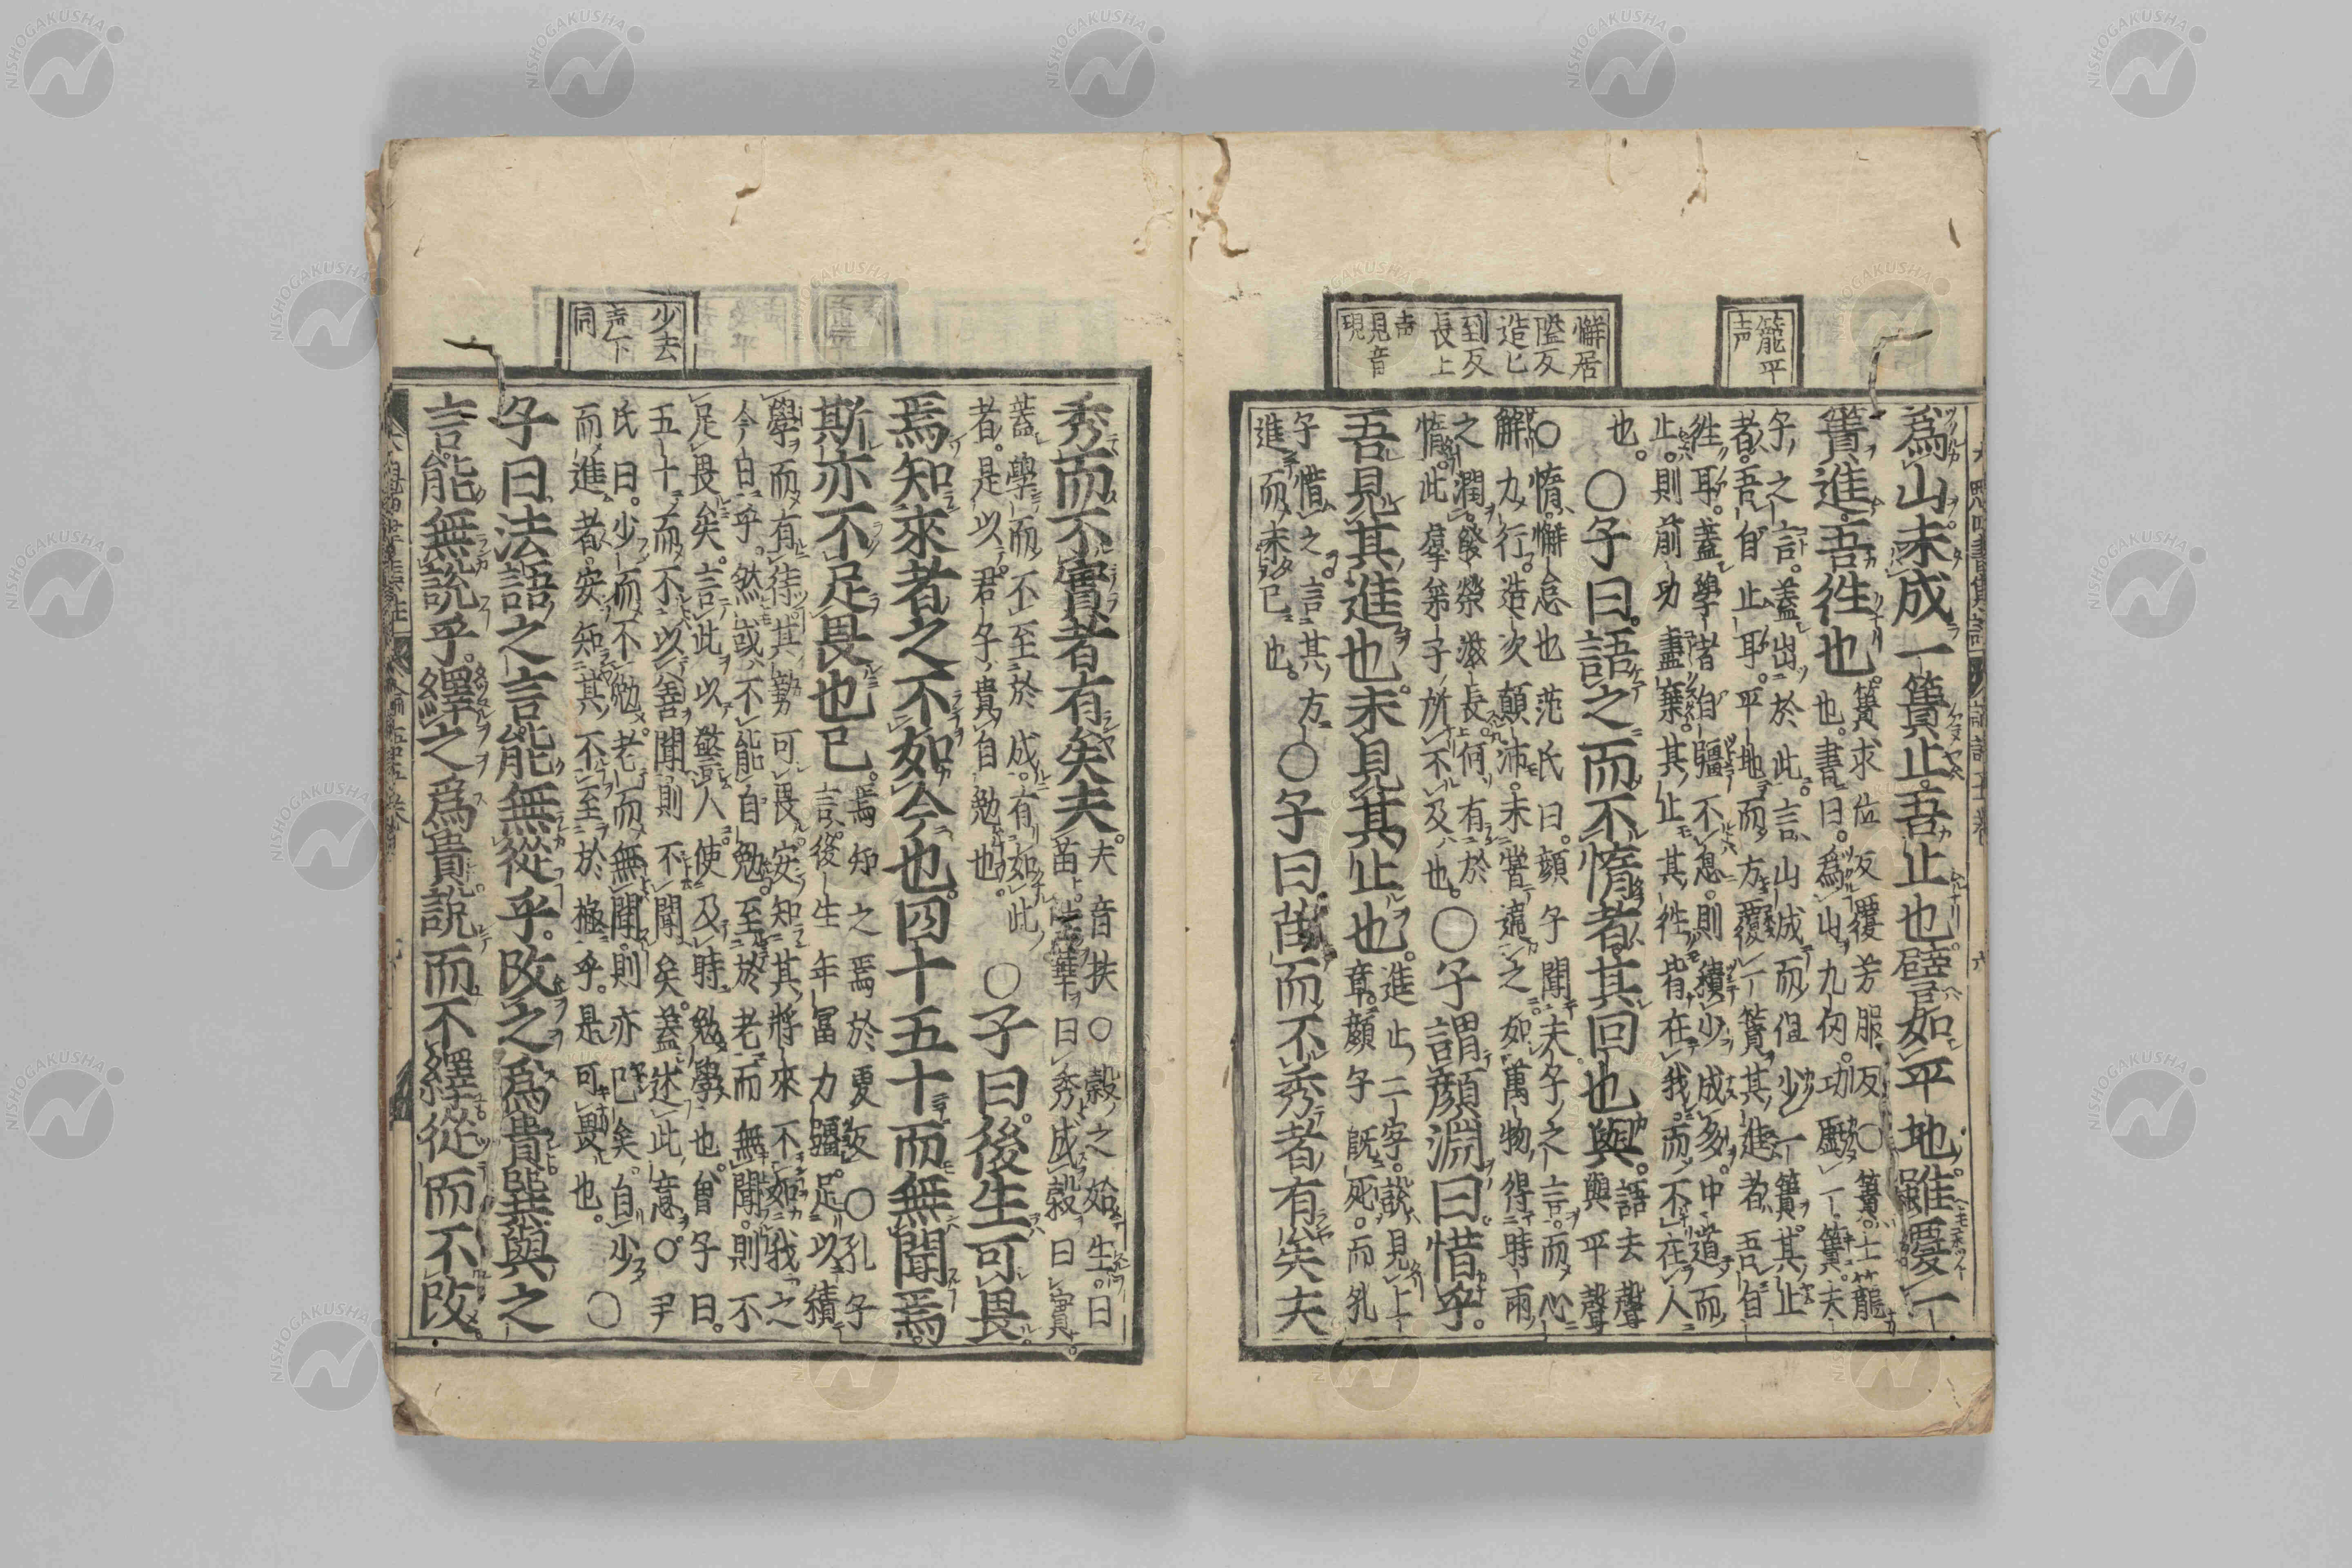 籠平
声
懈居
隥反
造七
到反
長上
声
見音
現
爲山未成一簣止吾止也譬如平地雖覆一
簣進吾徃也
簣求位反覆芳服反○簣土籠
也書曰爲山九仞功虧一簣夫
子之言蓋出於此言山成而但少一簣其止
者吾自止耳平地而方覆一簣其進者吾自
徃耳蓋學者自彊不息則積少成多中道而
止則前功盡棄其止其徃皆在我而不在人
也○子曰語之而不惰者其回也與
語去聲
與平聲
○惰懈怠也范氏曰顔子聞夫子之言而心
解力行造次顛沛未甞違之如萬物得時雨
之潤發榮滋長何有於
惰此羣弟子所不及也
○子謂顔淵曰惜乎
吾見其進也未見其止也
進止二字說見上
章顔子既死而孔
子惜之言其方
進而未已也
○子曰苗而不秀者有矣夫
少去
声下
同
秀而不實者有矣夫
夫音扶○穀之始生曰
苗吐華曰秀成穀曰實
蓋學而不至於成有如此
者是以君子貴自勉也
○子曰後生可畏
焉知來者之不如今也四十五十而無聞焉
斯亦不足畏也已
焉知之焉於虔反○孔子
言後生年富力彊足以積
學而有待其勢可畏安知其將來不如我之
今日乎然或不能自勉至於老而無聞則不
足畏矣言此以警人使及時勉學也曽子曰
五十而不以善聞則不聞矣蓋述此意○尹
氏曰少而不勉老而無聞則亦已矣自少
而進者安知其不至於極乎是可畏也
○
子曰法語之言能無從乎改之爲貴巽與之
言能無說乎繹之爲貴說而不繹從而不改